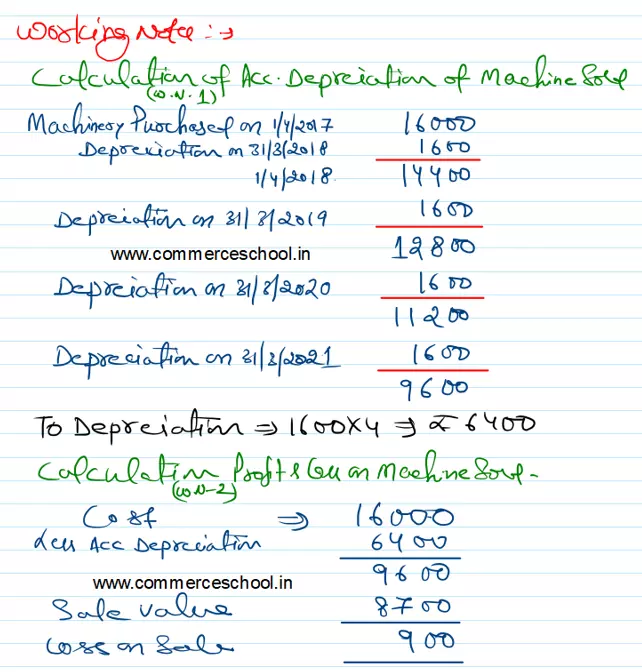 Working Note :→
Calculation of Acc. Depreciation of Machine Sold
(W.N.1)
Machinery Purchased on 1/4/2017 16000
Depreciation on 31/3/2018 1600
1/4/2018 14400
Depreciation on 31/3/2019 1600
www.commerceschool.in 12800
Depreciation on 31/3/2020 1600
11200
Depreciation on 31/3/2021 1600
9600
To Depreciation ⇒ 1600×4 ⇒ ₹ 6400
Calculation Profit & Loss on Machine Sold -
(W.N-2)
Cost ⇒ 16000
Less Acc Depreciation 6400
www.commerceschool.in 9600
Sale value 8700
Loss on Sale 900